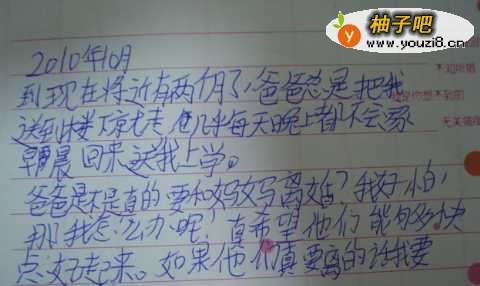 柚子吧
www.youzi8.cn
2010年10月
到现在将近有两个月了,爸爸总是把我
送到楼下就走 他几乎每天晚上都不会家
早晨回来送我上学。
爸爸是不是真的要和妈妈离婚?我好怕,
那我怎么办呢!真希望他们能够快
点好起来。如果他们真要离的话我要